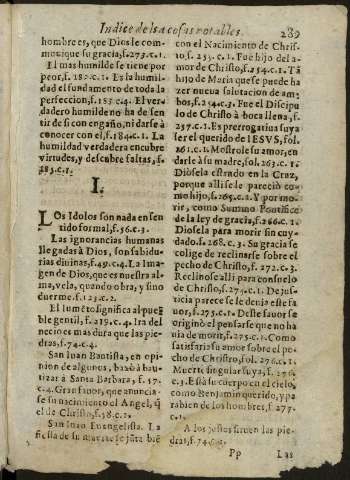 Indice de las cosas notables. 289
hombres, que Dios le com-
munique su gracia, f.273.c.1.
El mas humilde se tiene por
peor, f.182.c.1. Es la humil-
dad el fundamento de toda la
perfeccion, f.183.c.4. El ver-
dadero humilde no ha de sen-
tir de si con engaño, ni darse à
conocer con el, f.184.c.1. La
humildad verdadera encubre
virtudes, y descubre faltas, f.
185.c.1.
I.
LOs Idolos son nada en sen
tido formal, f.56.c.3.
Las ignorancias humanas
llegadas à Dios, son sabidu-
rias divinas, f.49.c.4. La Ima-
gen de Dios, que es nuestra al-
ma, vela, quando obra, y sino
duerme. f.123.c.2.
El Iumẽto significa al pue-
ble gentil, f.219.c.4. Ira del
necio es mas dura que las pie-
dras, f.74.c.4.
San Iuan Bautista, en opi-
nion de algunos, baxò à bau-
tizar à Santa Barbara, f.57.
c.4. Gran favor, que anuncia-
se su nacimiento el Angel, q̃
el de Christo, f.58.c.2.
San Iuan Euangelista. La
fiesta de su muerte se jũta biẽ
con el Nacimiento de Chris-
to, f.253.c.1. Fue hijo del a-
mor de Christo, f.254.c.1. Tã
hijo de Maria que se puede ha
zer nueua salutacion de am-
bos, f.254.c.3. Fue el Discipu
lo de Christo à boca llena, f.
257.c.1. Es prerrogatiua suya
ser el querido de IESVS, fol.
261.c.1. Mostrole su amor, en
darle à su madre, fol.263.c.1.
Diòsela estando en la Cruz,
porque alli se le pareciò co-
mo hijo, f.265.c.2. Y por mo-
rir, como Sumno Pontifice
de la ley de gracia, f.266.c.1.
Diosela para morir sin cuy-
dado. f.268.c.3. Su gracia se
collige de reclinarse sobre el
pecho de Christo, f.272.c.3.
Reclinose alli para consuelo
de Christo, f.274.c.1. De jus-
ticia parece se le devia este fa
uor, f.275.c.1. Deste fauor se
originò el pensarse que no ha
uia de morir, f.275.c.1. Como
satisfaria su amor sobre el pe-
cho de Christro, fol.276.c.1.
Muerte singular suya, f.276
c.3. Està su cuerpo en el cielo,
como Benjamin querido, y pa
rabien de los hombres, f.277
c.1.
A los justos siruen las pie-
dras, f.74.c.2.
Pp Las